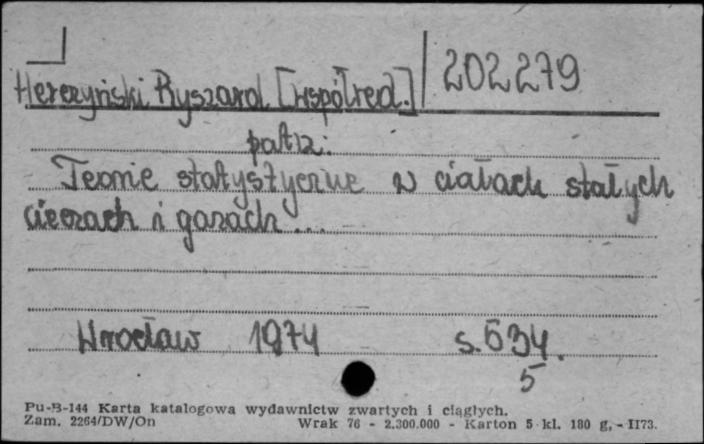 Herczyński Ryszard [współred.] 202279
patrz:
Teorie statystyczne w ciałach stałych
cieczach i gazach ...
Wrocław 1974 s. 634.
5
Pu-B-144 Karta katalogowa wydawnictw zwartych i ciągłych.
Zam. 2264/DW/On Wrak 76 - 2.300.000 - Karton 5 kl. 180 g, - II73.